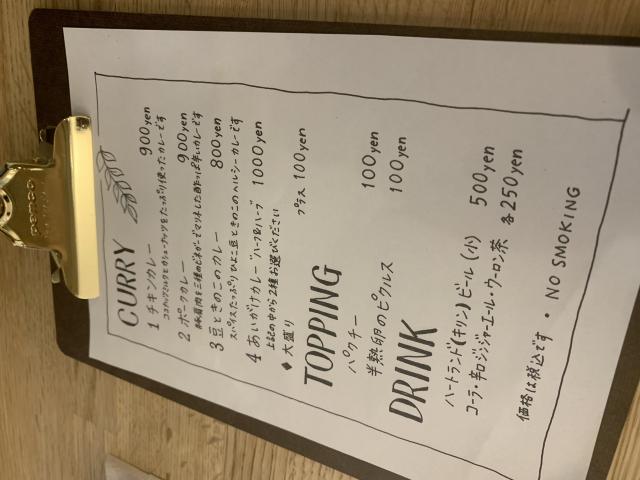 CURRY
1 チキンカレー 900yen
ココナッツミルクとカシューナッツをたっぷり使ったカレーです
2 ポークカレー 900yen
豚肩肉を三種のビネガーでマリネした酸っぱ辛いカレーです
3 豆ときのこのカレー 800yen
スパイスたっぷりひよこ豆ときのこのヘルシーカレーです
4 あいがけカレー"ハーフ&ハーフ" 1000yen
上記の中から2種お選びください
◆ 大盛り プラス 100yen
TOPPING
パクチー 100yen
半熟卵のピクルス 100yen
DRINK
ハートランド(キリン)ビール(小) 500yen
コーラ・辛口ジンジャーエール・ウーロン茶 各250yen
価格は税込です • NO SMOKING